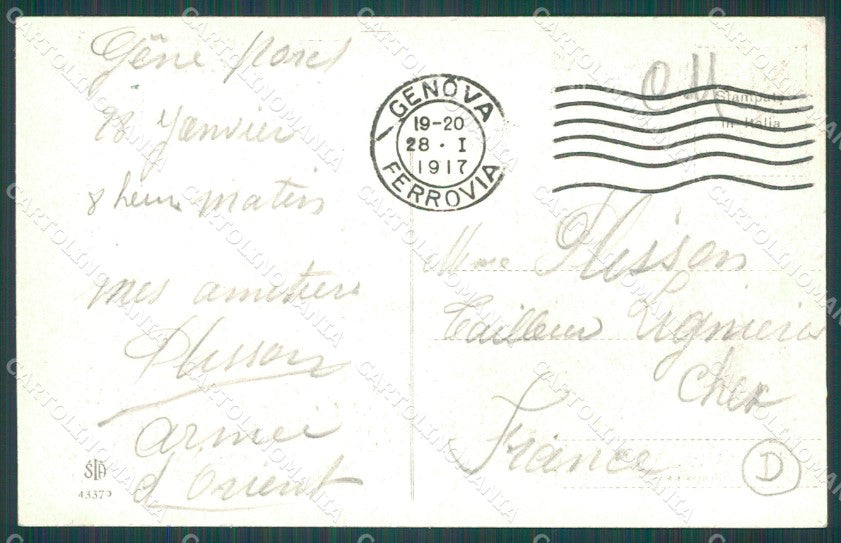 Gêne
28 Janvier
8 heure matin
mes amitiers
Plisson
armée
d'Orient
STA
43379
GENOVA
19-20
28 · I
1917
FERROVIA
Stampato
in Italia
Mme Plisson
tailleur Lignières
Cher
France
D
CARTOLINOMANIA